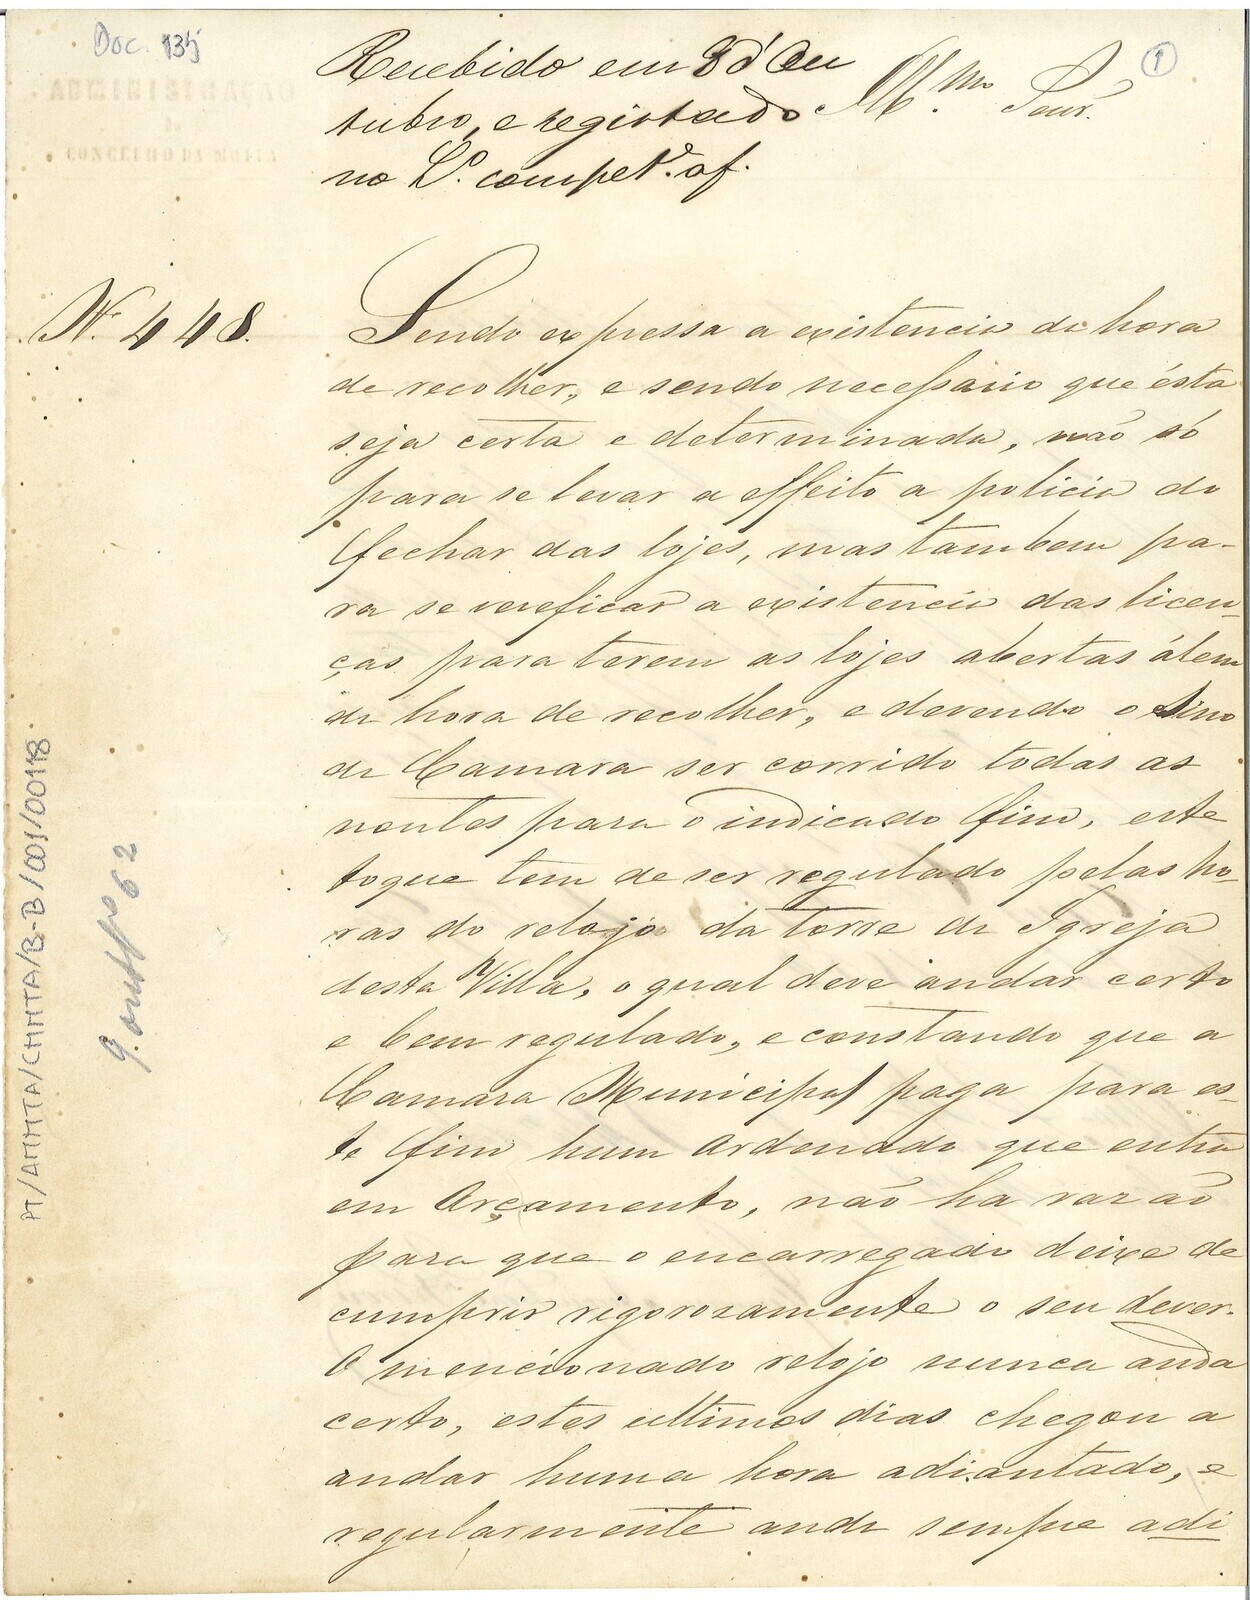 Doc. 135
1
ADMINISTRAÇÃO
DO
CONCELHO DA MOITA
Recebido em 8 d'Ou
tubro, e registado
no L.º compet.e of.
Ill.mo Senr.
N.º 448.
Sendo expressa a existencia da hora
de recolher, e sendo necessario que ésta
seja certa e determinada, não só
para se levar a effeito a policia do
fechar das lojes, mas tambem pa-
ra se vereficar a existencia das licen-
ças para terem as lojes abertas álem
da hora de recolher, e devendo o Sino
da Camara ser corrido todas as
noutes para o indicado fim, este
toque tem de ser regulado pelas ho-
ras do relojo da torre da Igreja
desta Villa, o qual deve andar certo
e bem regulado, e constando que a
Camara Municipal paga para es-
te fim hum Ordenado que entra
em Orçamento, não ha razão
para que o encarregado deixe de
cumprir rigorozamente o seu dever.
O mencionado relojo nunca anda
certo, estes ultimos dias chegou a
andar huma hora adiantado, e
regularmente anda sempre adi
PT/AMMTA/CMMTA/B-B/001/00118
9. outbro 62